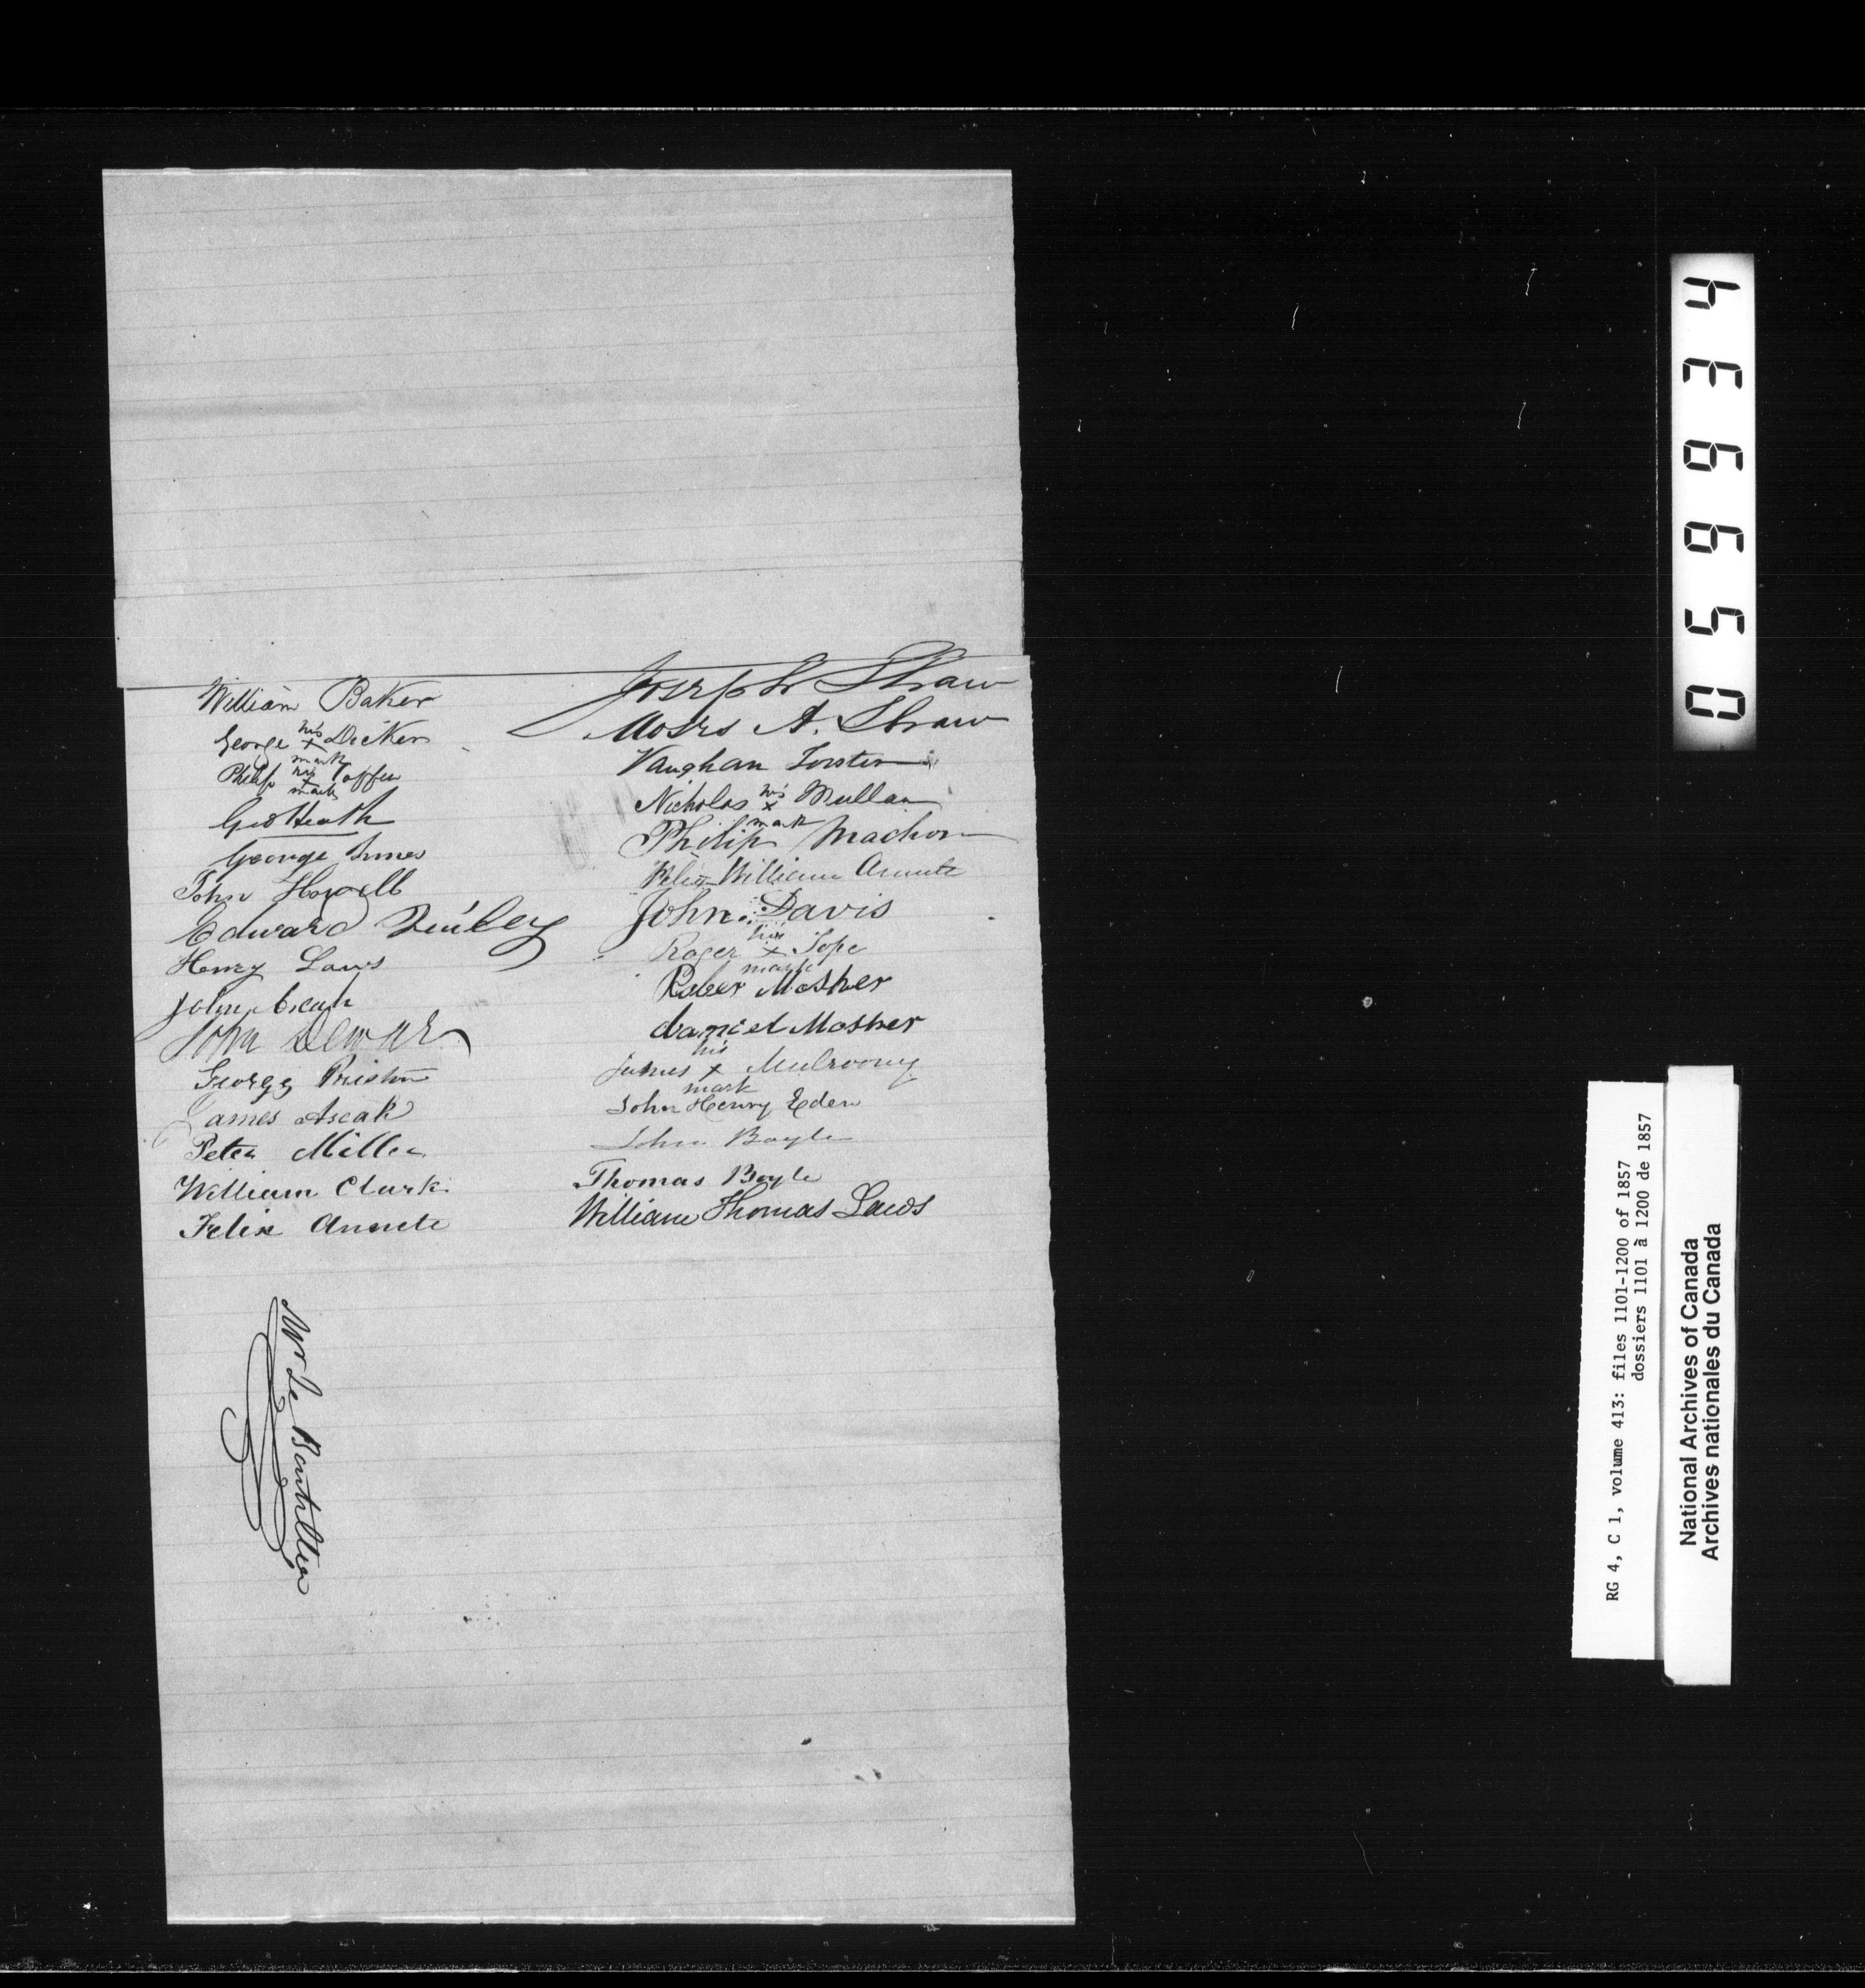 William Baker
George his x mark Dicker
Philip his x mark Coffin
Geo Heath
George Innes
John Howell
Edward
Henry Laws
John
John Dewar
George Preston
James Ascah
Peter Miller
William Clark
Felix Annete
Joseph Shaw
Moses A. Shaw
Vaughan
Nicholas his x mark Mullan
Philip Machon
Felix William Annete
John Davis
Roger his x mark Pope
Rober Mosher
daniel Mosher
James his x mark Mulroony
John Henry Eden
John Boyle
Thomas Boyle
William Thomas Laws
Mr Le Boutillier
056634
RG 4, C 1, volume 413: files 1101-1200 of 1857
dossiers 1101 à 1200 de 1857
National Archives of Canada
Archives nationales du Canada